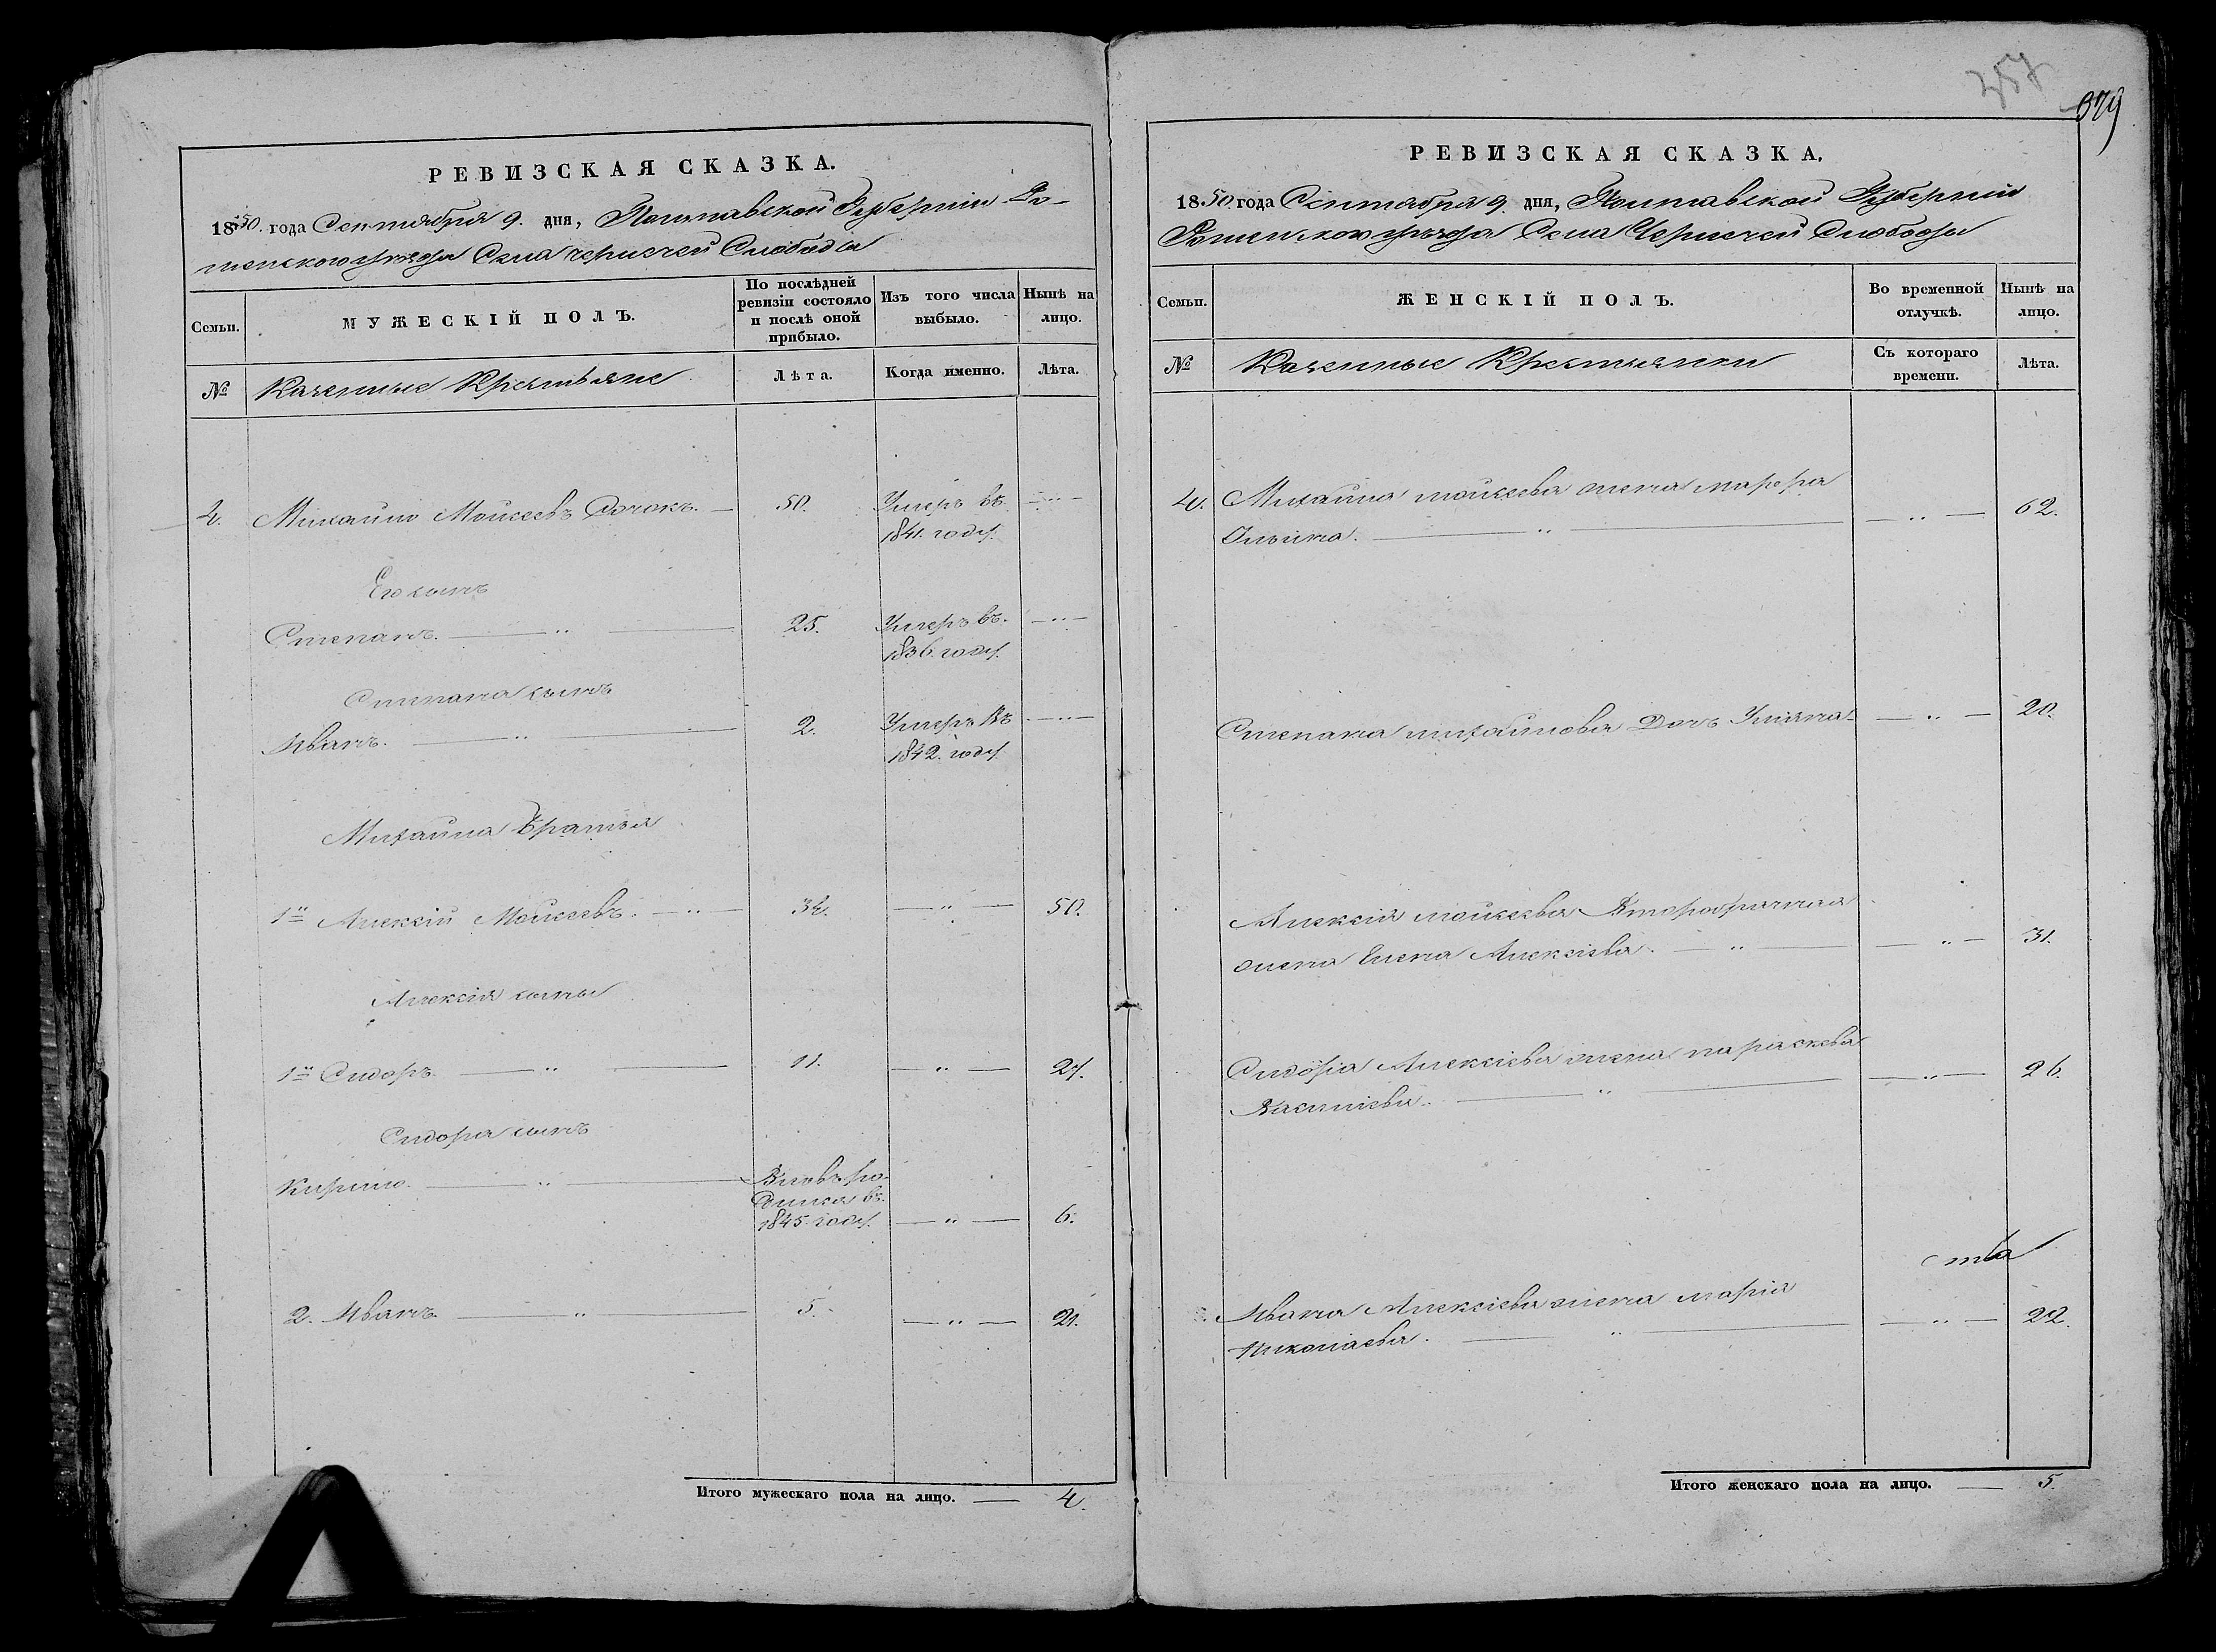 РЕВИЗСКАЯ СКАЗКА.
1850. года Сентября 9. дня, Полтавской Губернии Ро-
менского уѣзда Села чернечей Слободы
Семьи.
МУЖЕСКІЙ ПОЛЪ.
По послѣдней ревизіи состояло и послѣ оной прибыло.
Изъ того числа выбыло.
Нынѣ на лицо.
№
Казенные Крестьяне
Лѣта.
Когда именно.
Лѣта.
4. Михайло Мойсеевъ 50. Умеръ въ
1841. году.
Его сынъ
Степанъ. 25. Умеръ въ.
1836. году.
Степана сынъ
Иванъ. 2. Умеръ Въ
1842. году.
Михайла Братья
1й Алексій Мойсеевъ. 34. 50.
Алексія сыны
1й Сидоръ 11. 27.
Сидора сынъ
Кирило. Вновь ро-
дился въ.
1845. году. 6.
2. Иванъ. 5. 21.
Итого мужескаго пола на лицо. 4.
257
379
РЕВИЗСКАЯ СКАЗКА.
1850 года Сентября 9. дня, Полтавской Губернии
Роменского уѣзда Села Чернечей Слободы
Семьи.
ЖЕНСКІЙ ПОЛЪ.
Во временной отлучкѣ.
Нынѣ на лицо.
№
Казенные Крестьянки
Съ котораго времени.
Лѣта.
4. Михайла мойсеева жена марфа
Ильина. 62.
Степана михайлова Дочь Уляна 20.
Алексія мойсеева Второбрачная
жена Елена Алексіева. 31.
Сидора Алексіева жена параскева
Василіева. 26.
Ивана Алексіева жена марія
Николаева. 22.
Итого женскаго пола на лицо. 5.